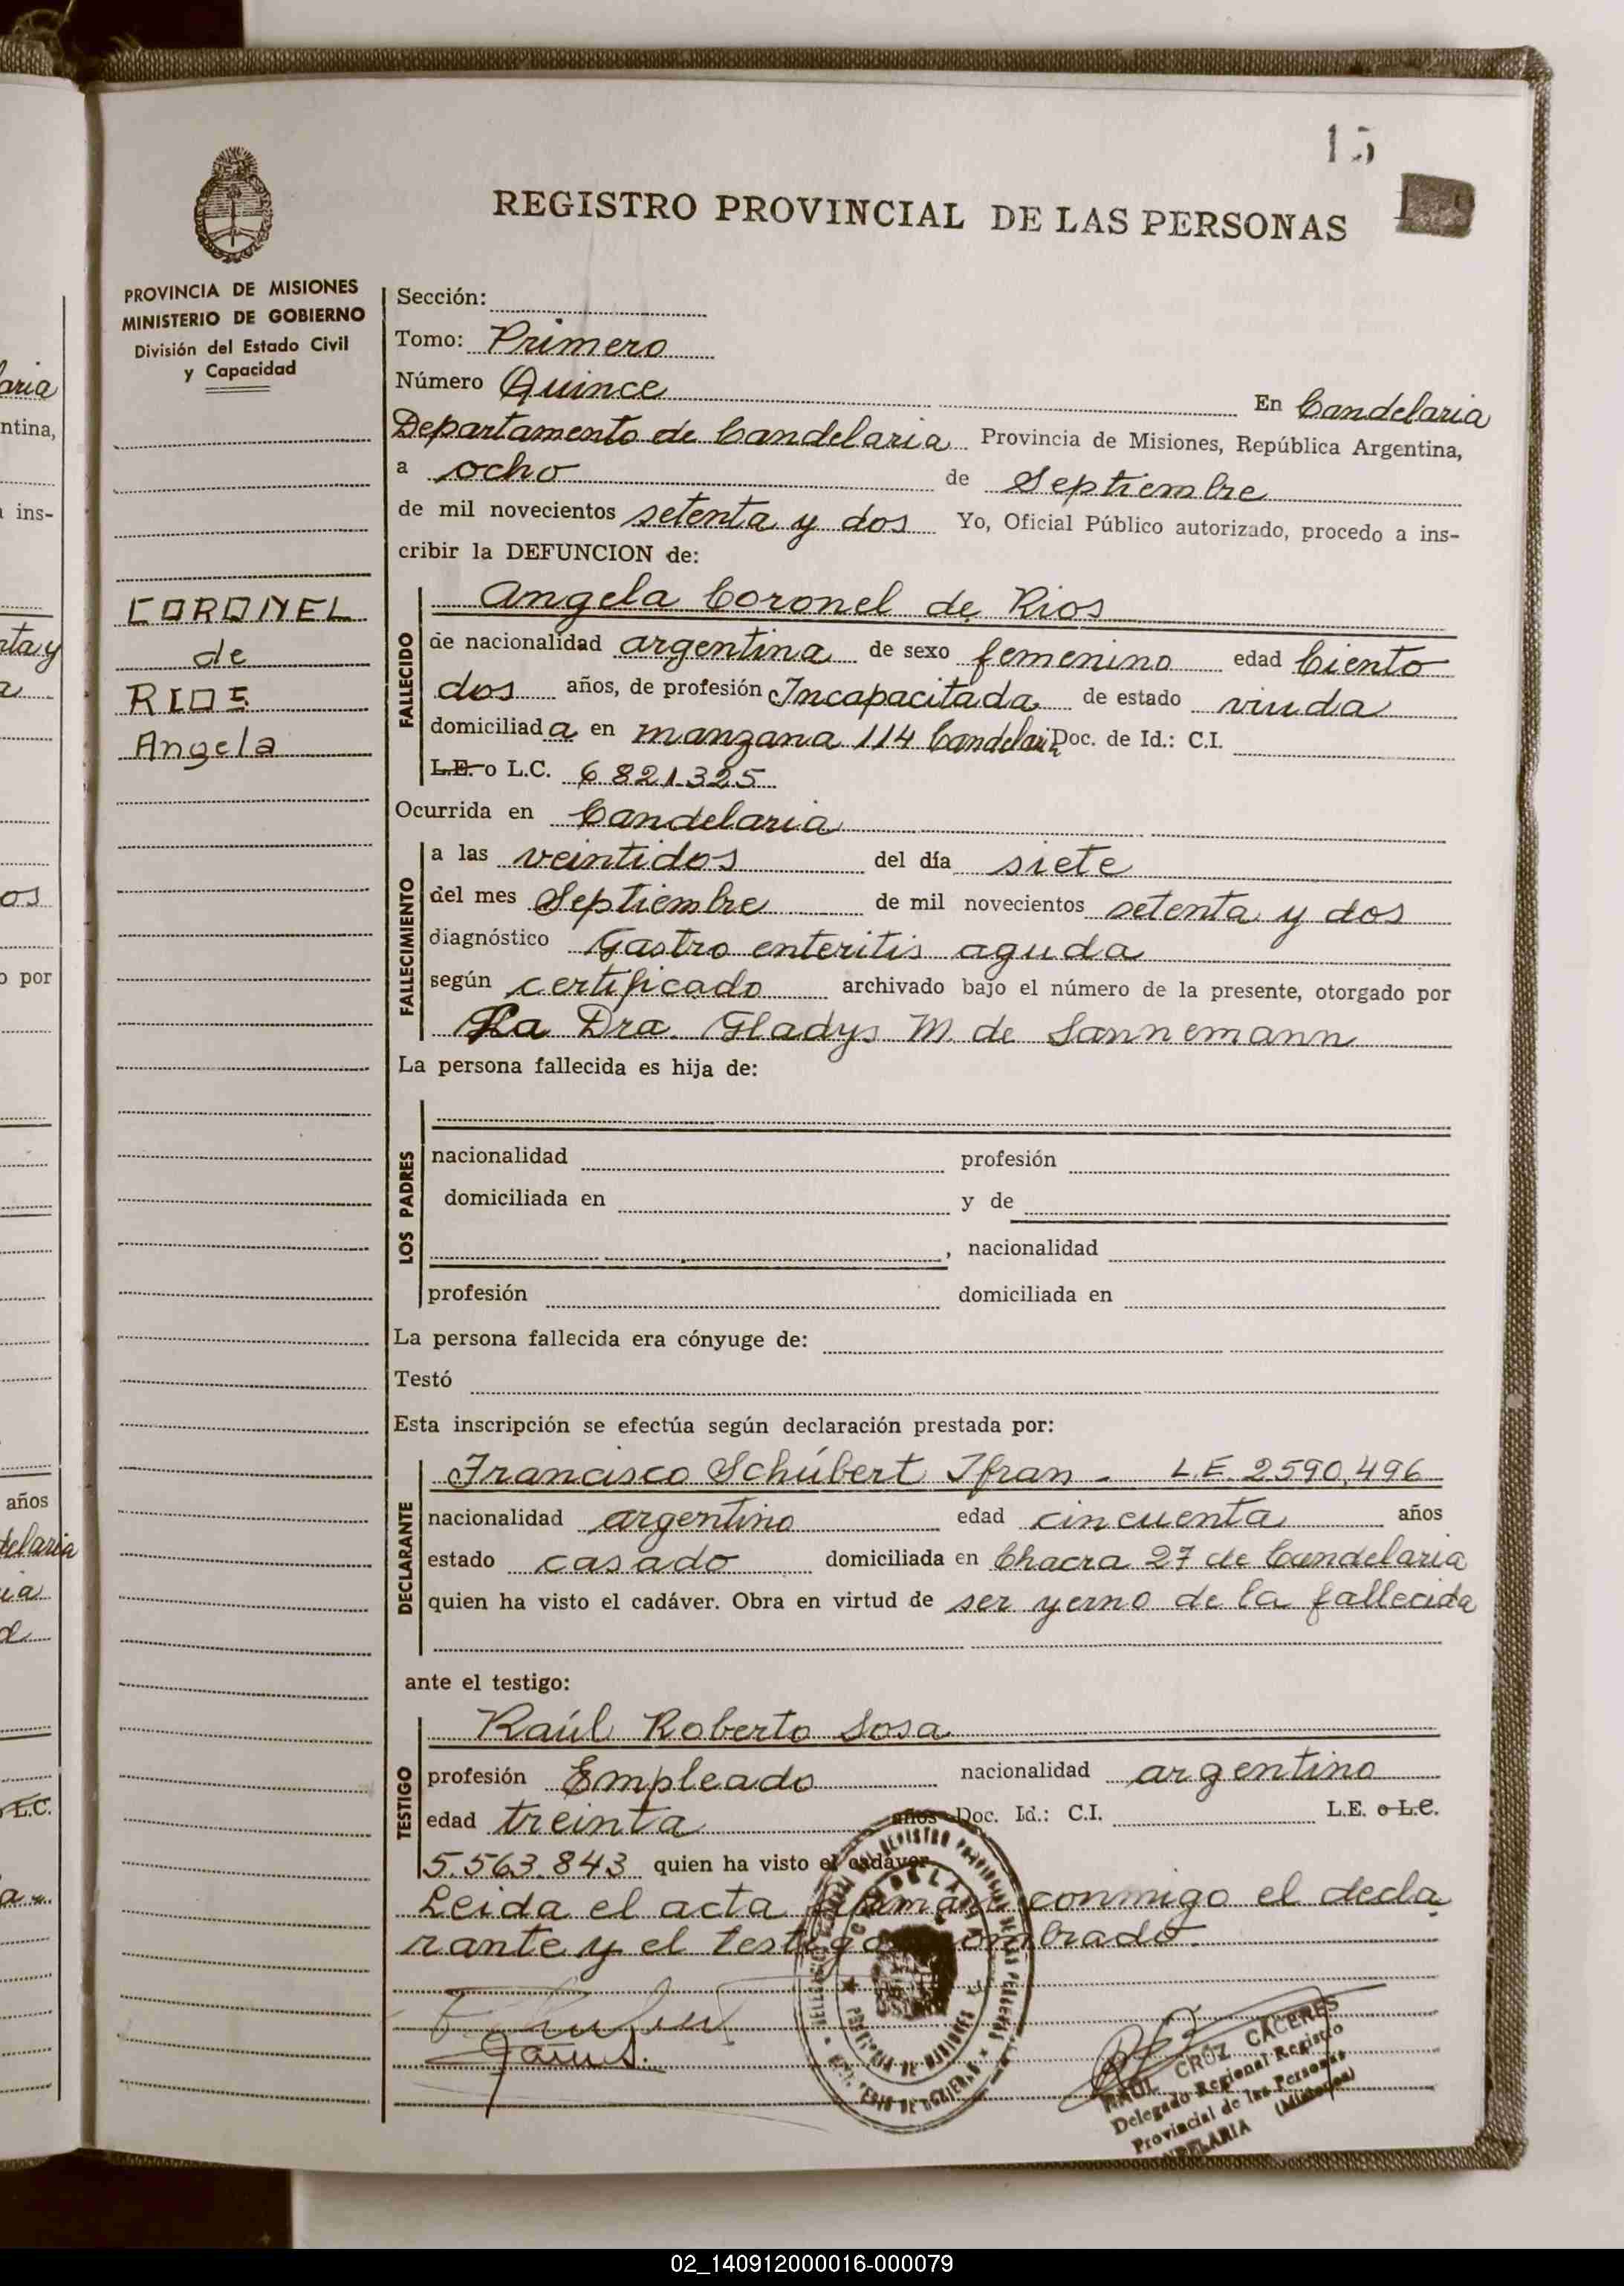 15
REGISTRO PROVINCIAL DE LAS PERSONAS
PROVINCIA DE MISIONES
MINISTERIO DE GOBIERNO
División del Estado Civil
y Capacidad
CORONEL
de
RIOS
Angela
Sección:
Tomo: Primero
Número Quince En Candelaria
Departamento de Candelaria Provincia de Misiones, República Argentina,
a ocho de Septiembre
de mil novecientos setenta y dos Yo, Oficial Público autorizado, procedo a ins-
cribir la DEFUNCION de:
FALLECIDO
Angela Coronel de Rios
de nacionalidad argentina de sexo femenino edad Ciento
dos años, de profesión Incapacitada de estado viuda
domiciliada en manzana 114 Candelaria Doc. de Id.: C.I.
L.E. o L.C. 6821325
Ocurrida en Candelaria
FALLECIMIENTO
a las veintidos del día siete
del mes Septiembre de mil novecientos setenta y dos
diagnóstico Gastro enteritis aguda
según certificado archivado bajo el número de la presente, otorgado por
La Dra. Gladys M. de Sannemann
La persona fallecida es hija de:
LOS PADRES
nacionalidad profesión
domiciliada en y de
, nacionalidad
profesión domiciliada en
La persona fallecida era cónyuge de:
Testó
Esta inscripción se efectúa según declaración prestada por:
DECLARANTE
Francisco Schúbert Ifran - L.E. 2590,496
nacionalidad argentino edad cincuenta años
estado casado domiciliada en Chacra 27 de Candelaria
quien ha visto el cadáver. Obra en virtud de ser yerno de la fallecida
ante el testigo:
TESTIGO
Raúl Roberto Sosa
profesión Empleado nacionalidad argentino
edad treinta años Doc. Id.: C.I. L.E. o L.C.
5.563.843 quien ha visto el cadáver
Leida el acta firman conmigo el decla
rante y el testigo nombrado.
RAUL CRUZ CACERES
Delegado Regional Registro
Provincial de las Personas
CANDELARIA (Misiones)
aria
ntina,
ins-
nta y
os
o por
años
delaria
L.C.
02_140912000016-000079